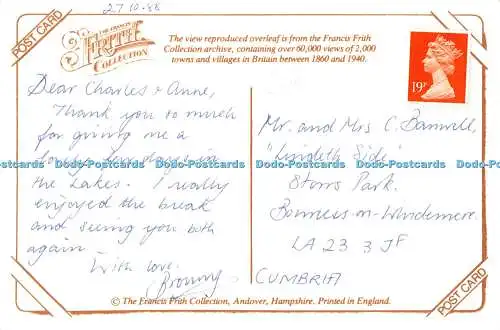 27 10.88
POST CARD
THE FRANCIS
FRITH
COLLECTION
The view reproduced overleaf is from the Francis Frith
Collection archive, containing over 60,000 views of 2,000
towns and villages in Britain between 1860 and 1940.
19P
Dear Charles & Anne,
Thank you so much
for giving me a
lovely few days in
the Lakes. I really
enjoyed the break
and seeing you both
again.
With love.
Mr. and Mrs C. Banwell,
"Lindeth Side"
Storrs Park.
Bowness-on-Windermere
LA 23 3 JF
CUMBRIA
Dodo-Postcards Dodo-Postcards Dodo-Postcards Dodo-Postcards Dodo-Postcards Dodo-Postcards
© The Francis Frith Collection, Andover, Hampshire. Printed in England.
POST CARD
POST CARD